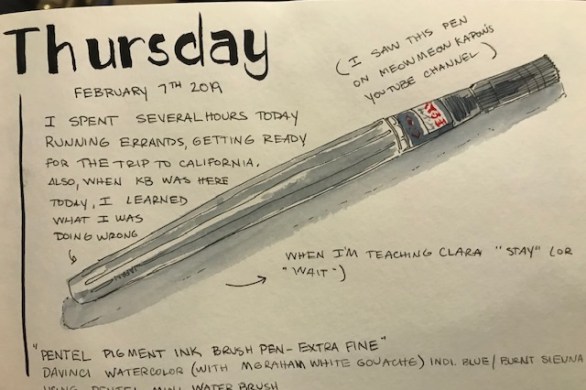 Thursday
FEBRUARY 7TH 2019
(I SAW THIS PEN
ON MEOWMEOW KAPOW'S
YOUTUBE CHANNEL)
I SPENT SEVERAL HOURS TODAY
RUNNING ERRANDS, GETTING READY
FOR THE TRIP TO CALIFORNIA.
ALSO, WHEN KB WAS HERE
TODAY, I LEARNED
WHAT I WAS
DOING WRONG
WHEN I'M TEACHING CLARA "STAY" (OR
"WAIT")
"PENTEL PIGMENT INK BRUSH PEN - EXTRA FINE"
DAVINCI WATERCOLOR (WITH MGRAHAM WHITE GOUACHE) INDI. BLUE/BURNT SIENNA
USING PENTEL MINI WATER BRUSH